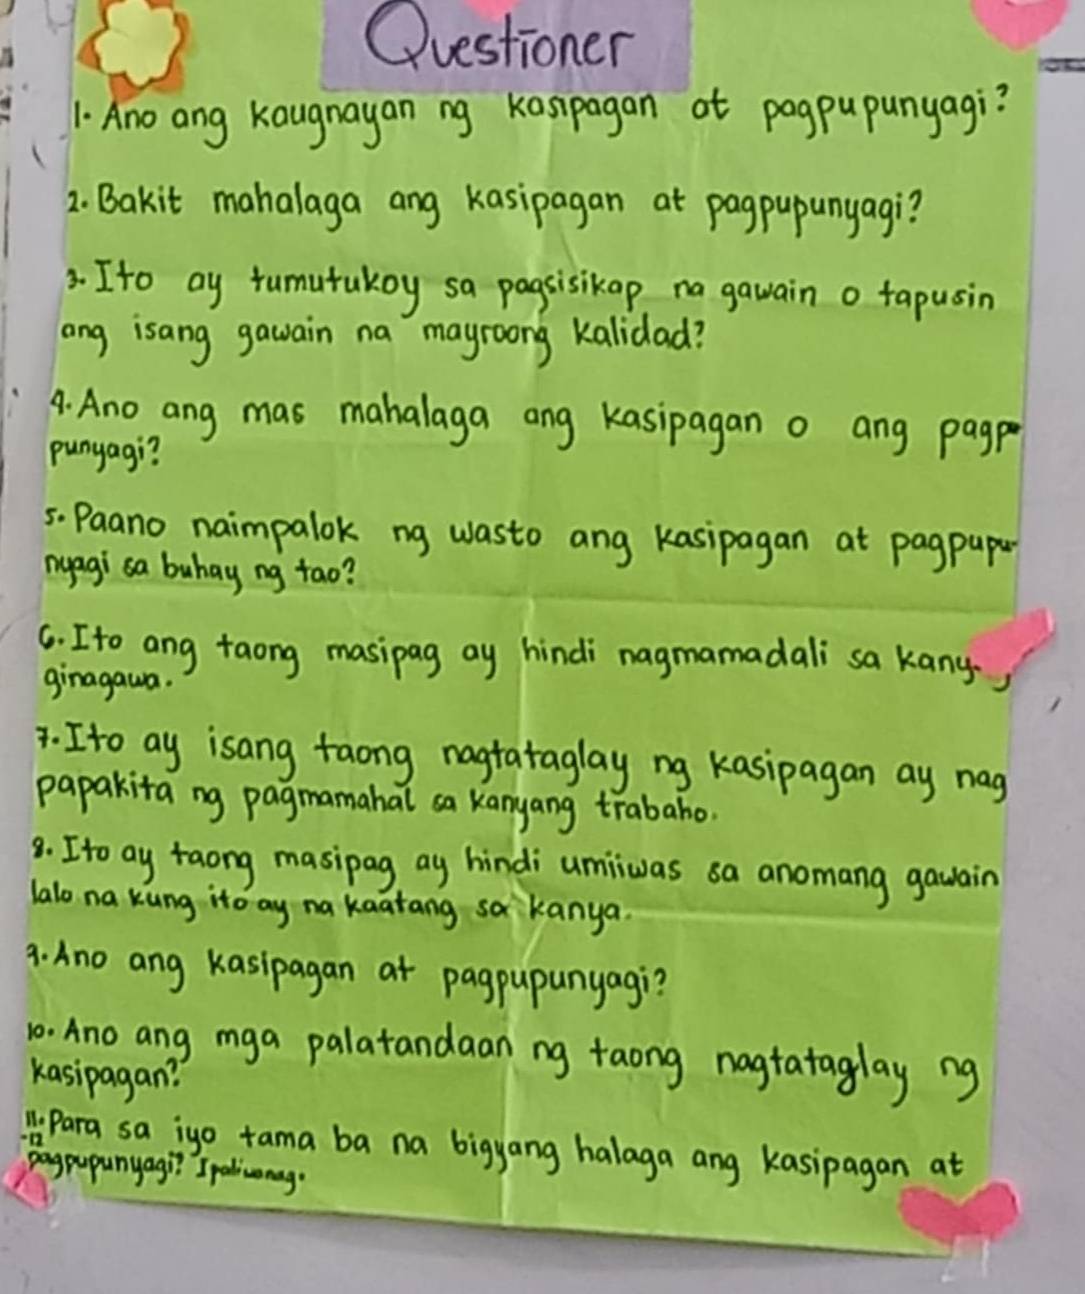 Questioner
1. Ano ang kaugnayan ng kasipagan at pagpupunyagi?
2. Bakit mahalaga ang kasipagan at pagpupunyagi?
3. Ito ay tumutukoy sa pagsisikap na gawain o tapusin
ang isang gawain na mayroong kalidad?
4. Ano ang mas mahalaga ang kasipagan o ang pagp
punyagi?
5. Paano naimpalok ng wasto ang kasipagan at pagpupu
nyagi sa buhay ng tao?
6. Ito ang taong masipag ay hindi nagmamadali sa kany
ginagawa.
7. Ito ay isang taong nagtataglay ng kasipagan ay nag
papakita ng pagmamahal sa kanyang trabaho.
8. Ito ay taong masipag ay hindi umiiwas sa anomang gawain
lalo na kung ito ay na kaatang sa kanya.
9. Ano ang kasipagan at pagpupunyagi?
10. Ano ang mga palatandaan ng taong nagtataglay ng
kasipagan?
11. Para sa iyo tama ba na bigyang halaga ang kasipagan at
-12 pagpupunyagi? Ipaliwanag.